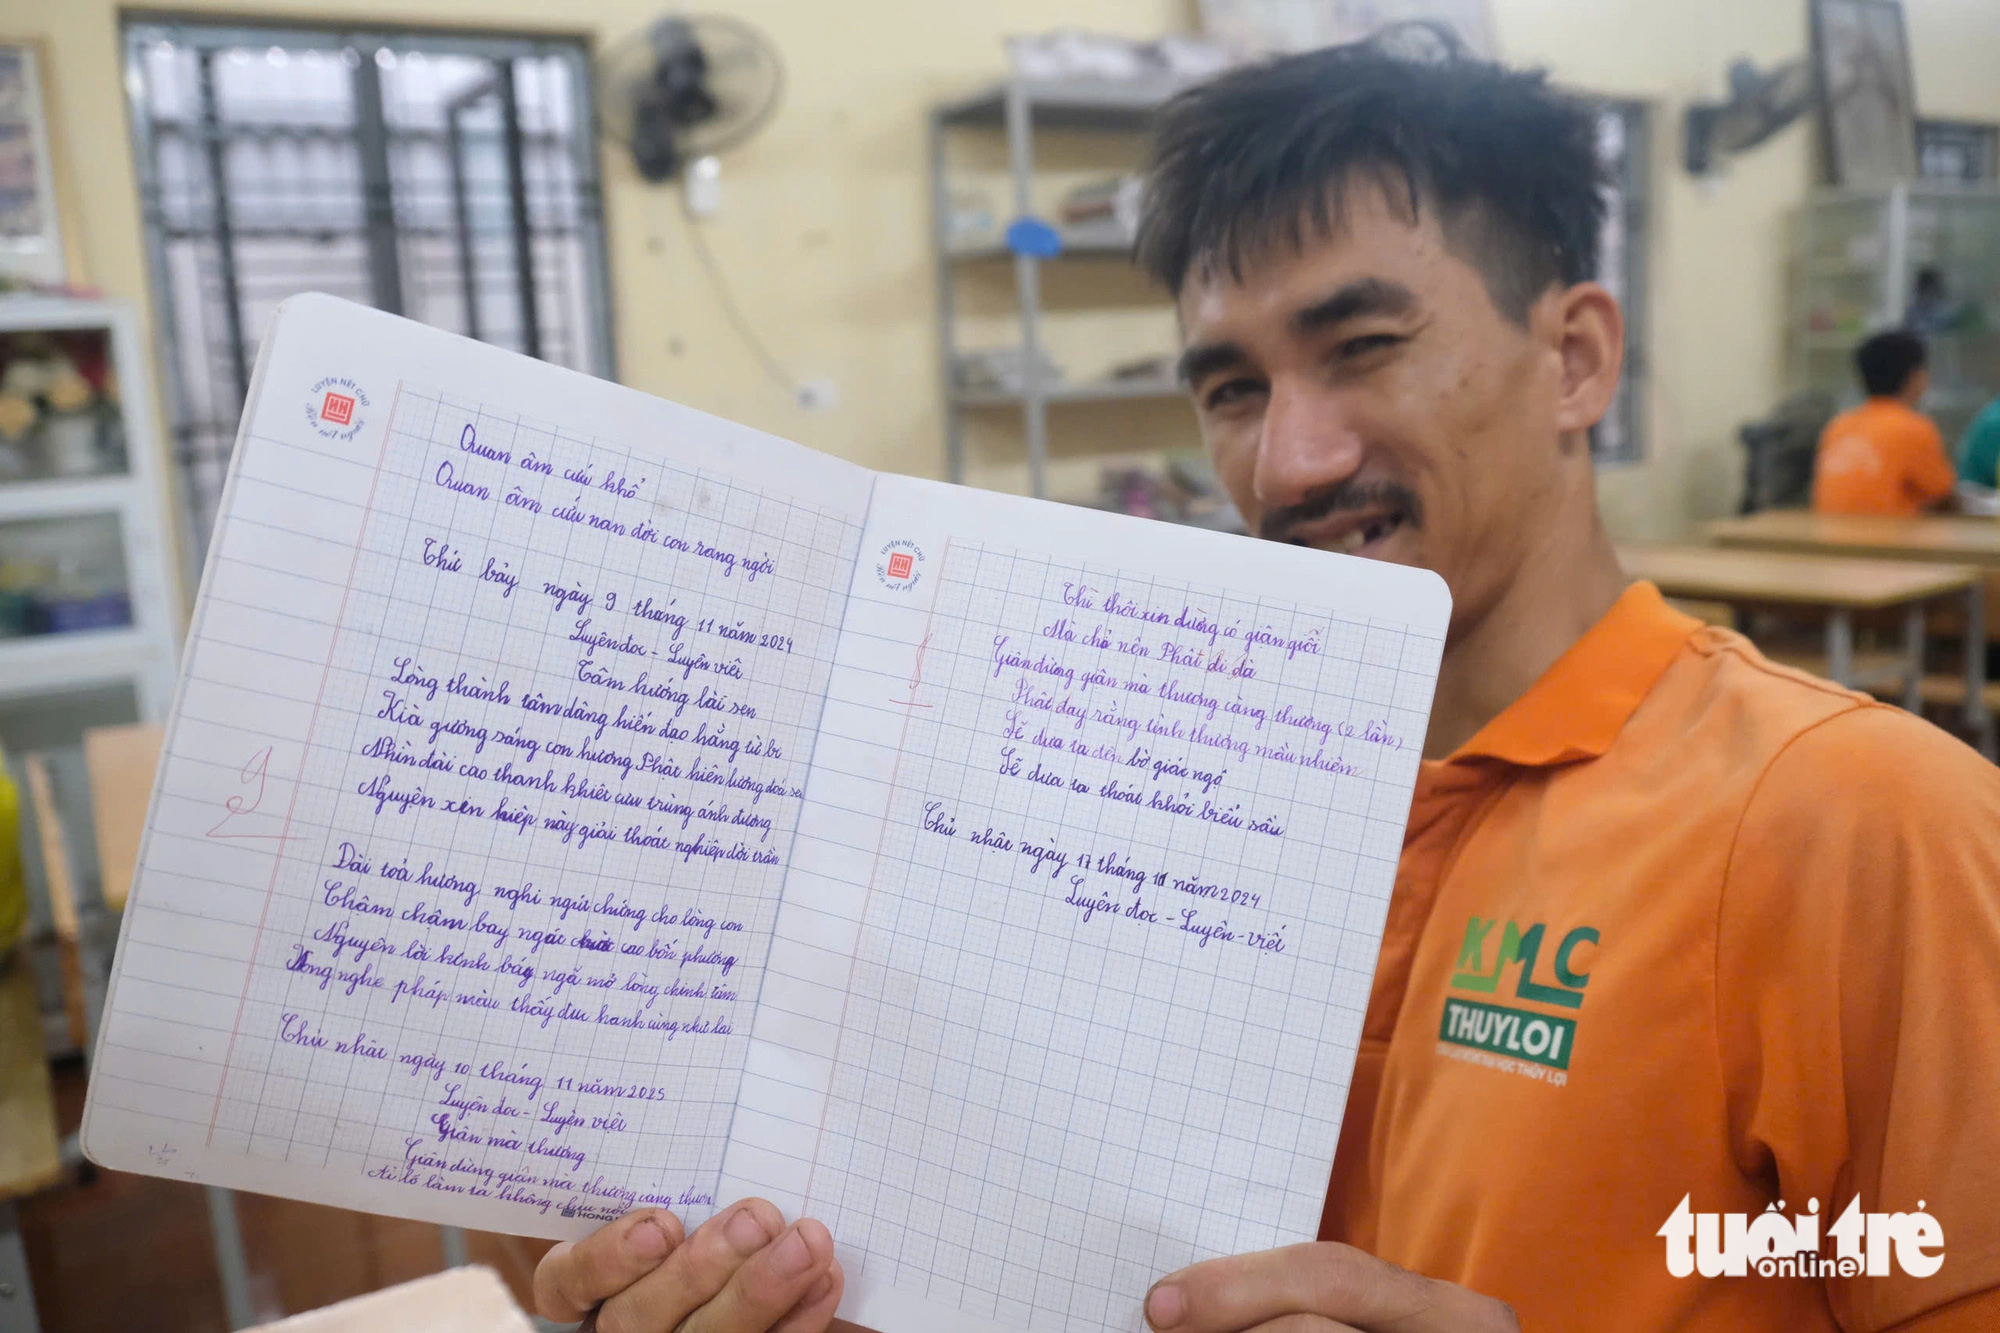 LUYỆN NÉT CHỮ
HH
Rèn nét người
Quan âm cứu khổ
Quan âm cứu nan đời con rang ngời
Thứ bảy ngày 9 tháng 11 năm 2024
Luyện đoc - Luyện viêt
Tâm hướng lài sen
Lòng thành tâm dâng hiến đạo hằng từ bi
Kià gương sáng con hương Phật hiên lương đoá sen
Nhìn dài cao thanh khiêt cưu trùng ánh đương
Nguyện xin kiêp này giải thoát nghiệp đời trần
9
Dài toả hương nghi ngút chứng cho lòng con
Thâm chậm bay ngát cao bốn phương
Nguyên lời kinh bay ngã mở lòng chính tâm
Mong nghe pháp màu thấy đưc hanh cùng như lai
Chủ nhât ngày 10 tháng 11 năm 2025
Luyện đoc - Luyên viêt
Giân mà thương
Giân đừng giân mà thương càng thươn
Ai lỡ làm ta không
HONG
LUYỆN NÉT CHỮ
HH
Rèn nét người
Thì thôi xin đừng có giân giỗi
Mà chở nên Phât di đà
Giân đừng giân mà thương càng thương (2 lần)
Phât day rằng tình thương màu nhiêm
Sẽ đưa ta đến bờ giác ngộ
Sẽ đưa ta thoát khỏi biển sầu
Chủ nhât ngày 17 tháng 11 năm 2024
Luyện đọc - Luyên - việt
KMC
THUYLOI
HỌC THỦY LỢI
tuổi trẻ
online